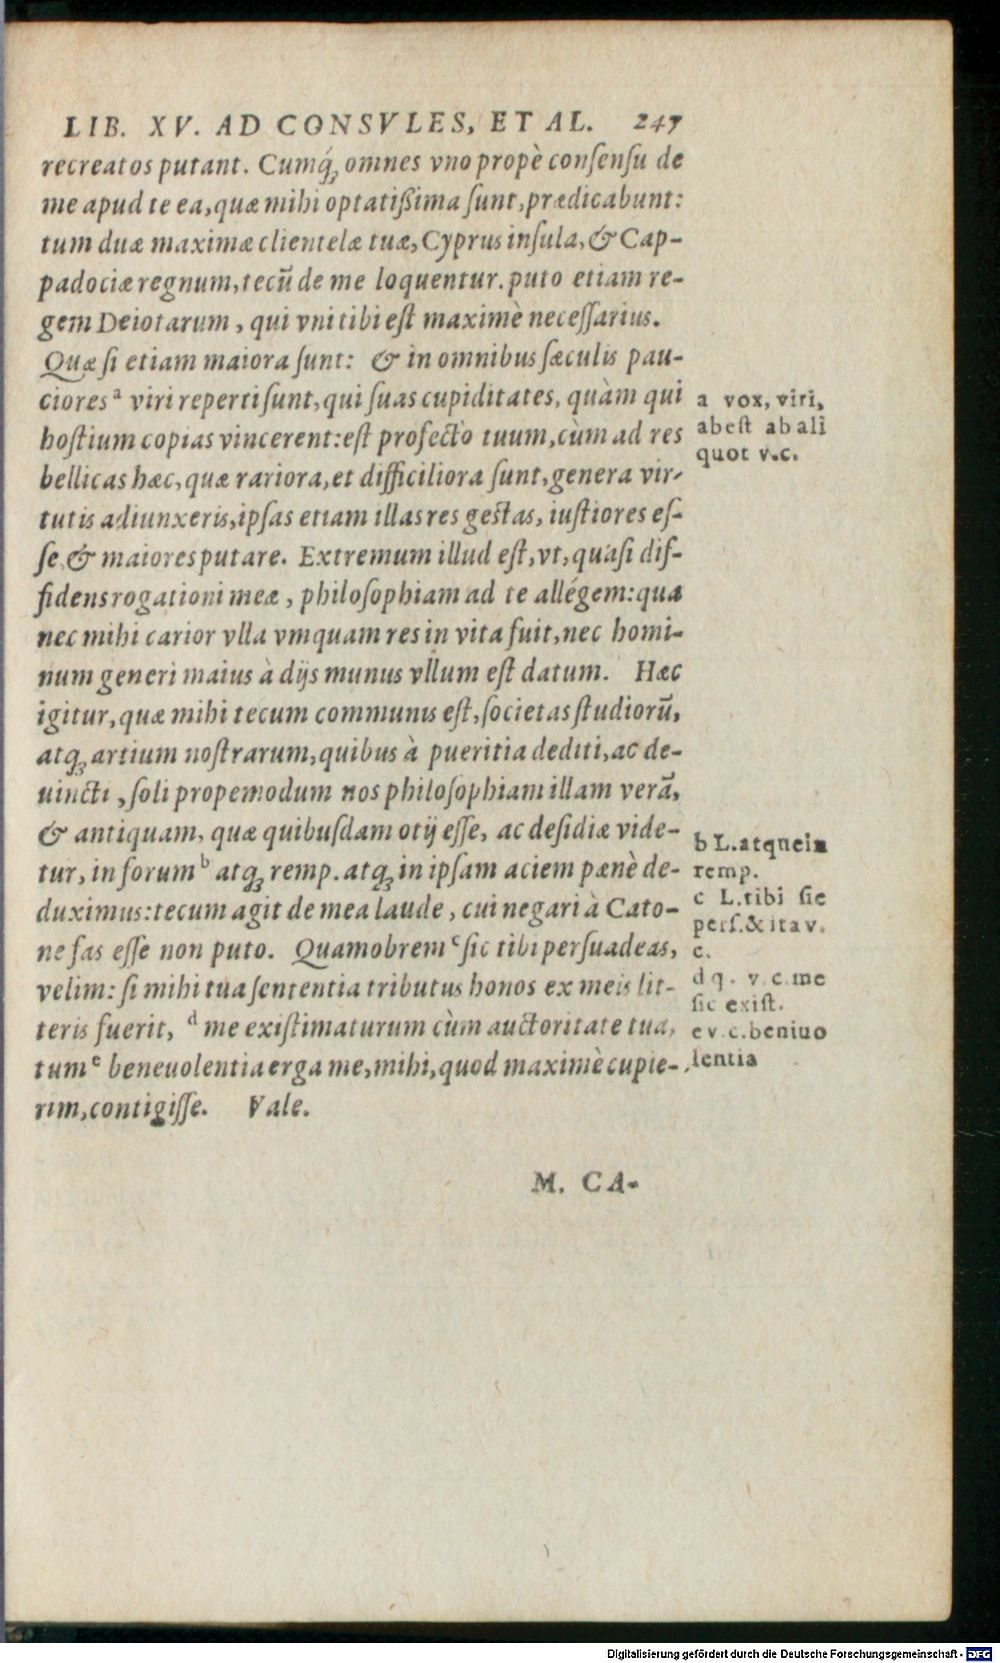 LIB. XV. AD CONSVLES, ET AL. 247
recreatos putant. Cumq́ꝫ omnes vno propè consensu de
me apud te ea, quæ mihi optatißima sunt, prædicabunt:
tum duæ maximæ clientelæ tuæ, Cyprus insula, & Cap-
padociæ regnum, tecũ de me loquentur. puto etiam re-
gem Deiotarum, qui vni tibi est maximè necessarius.
Quæ si etiam maiora sunt: & in omnibus sæculis pau-
ciores ᵃ viri reperti sunt, qui suas cupiditates, quàm qui
hostium copias vincerent: est profectò tuum, cùm ad res
bellicas hæc, quæ rariora, et difficiliora sunt, genera vir-
tutis adiunxeris, ipsas etiam illas res gestas, iustiores es-
se & maiores putare. Extremum illud est, vt, quasi dif-
fidens rogationi meæ, philosophiam ad te allégem: qua
nec mihi carior vlla vmquam res in vita fuit, nec homi-
num generi maius à dijs munus vllum est datum. Hæc
igitur, quæ mihi tecum communis est, societas studiorũ,
atqꝫ artium nostrarum, quibus à pueritia dediti, ac de-
uincti, soli propemodum nos philosophiam illam verã,
& antiquam, quæ quibusdam otij esse, ac desidiæ vide-
tur, in forum ᵇ atqꝫ remp. atqꝫ in ipsam aciem pænè de-
duximus: tecum agit de mea laude, cui negari à Cato-
ne fas esse non puto. Quamobrem ᶜ sic tibi persuadeas,
velim: si mihi tua sententia tributus honos ex meis lit-
teris fuerit, ᵈ me existimaturum cùm auctoritate tua,
tum ᵉ beneuolentia erga me, mihi, quod maximè cupie-
rim, contigisse. Vale.
M. CA-
a vox, viri,
abest ab ali
quot v.c.
b L. atque in
remp.
c L. tibi sic
pers. & ita v.
c.
d q. v.c. me
sic exist.
e v.c. beniuo
lentia
Digitalisierung gefördert durch die Deutsche Forschungsgemeinschaft - DFG